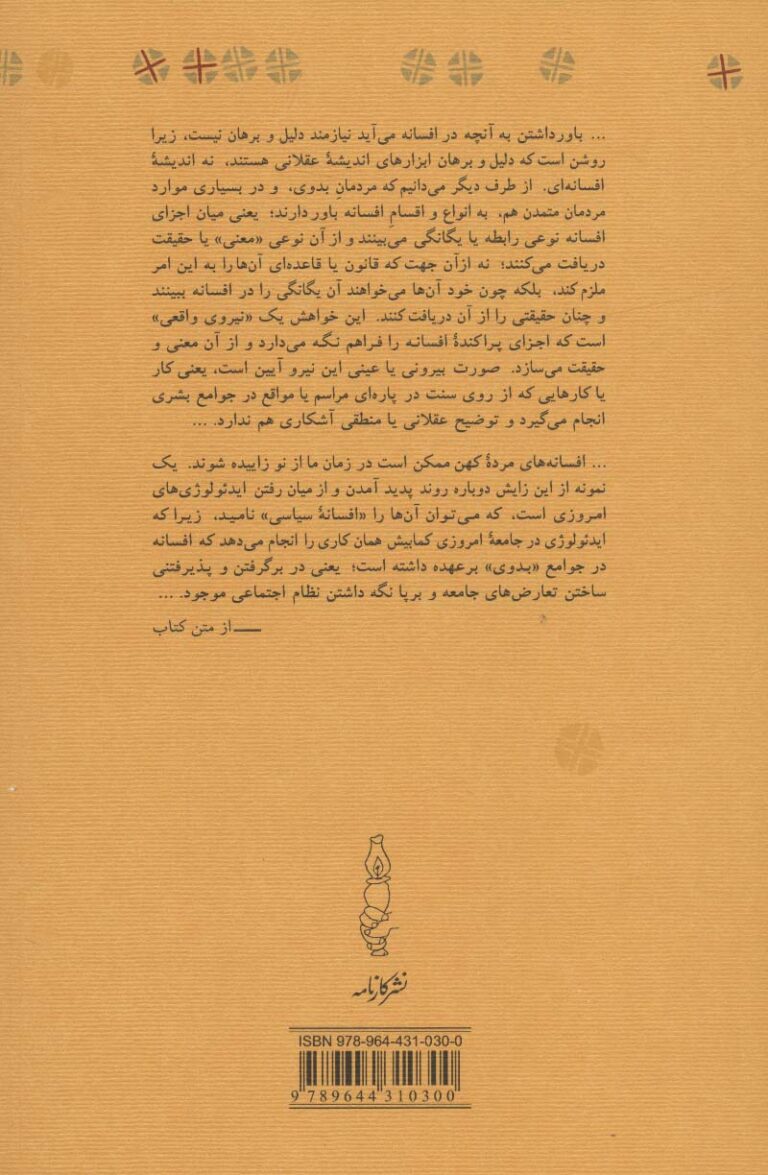 ... باور داشتن به آنچه در افسانه می‌آید نیازمند دلیل و برهان نیست، زیرا
روشن است که دلیل و برهان ابزارهای اندیشهٔ عقلانی هستند، نه اندیشهٔ
افسانه‌ای. از طرف دیگر می‌دانیم که مردمانِ بدوی، و در بسیاری موارد
مردمان متمدن هم، به انواع و اقسامِ افسانه باور دارند؛ یعنی میان اجزای
افسانه نوعی رابطه یا یگانگی می‌بینند و از آن نوعی «معنی» یا حقیقت
دریافت می‌کنند؛ نه ازآن جهت که قانون یا قاعده‌ای آن‌ها را به این امر
ملزم کند، بلکه چون خود آن‌ها می‌خواهند آن یگانگی را در افسانه ببینند
و چنان حقیقتی را از آن دریافت کنند. این خواهش یک «نیروی واقعی»
است که اجزای پراکندهٔ افسانه را فراهم نگه می‌دارد و از آن معنی و
حقیقت می‌سازد. صورت بیرونی یا عینی این نیرو آیین است، یعنی کار
یا کارهایی که از روی سنت در پاره‌ای مراسم یا مواقع در جوامع بشری
انجام می‌گیرد و توضیح عقلانی یا منطقی آشکاری هم ندارد. ...
... افسانه‌های مردهٔ کهن ممکن است در زمان ما از نو زاییده شوند. یک
نمونه از این زایش دوباره روند پدید آمدن و از میان رفتن ایدئولوژی‌های
امروزی است، که می‌توان آن‌ها را «افسانهٔ سیاسی» نامید، زیرا که
ایدئولوژی در جامعهٔ امروزی کمابیش همان کاری را انجام می‌دهد که افسانه
در جوامع «بدوی» برعهده داشته است؛ یعنی در برگرفتن و پذیرفتنی
ساختن تعارض‌های جامعه و برپا نگه داشتن نظام اجتماعی موجود. ...
ــــ از متن کتاب
نشر کارنامه
ISBN 978-964-431-030-0
9 789644 310300